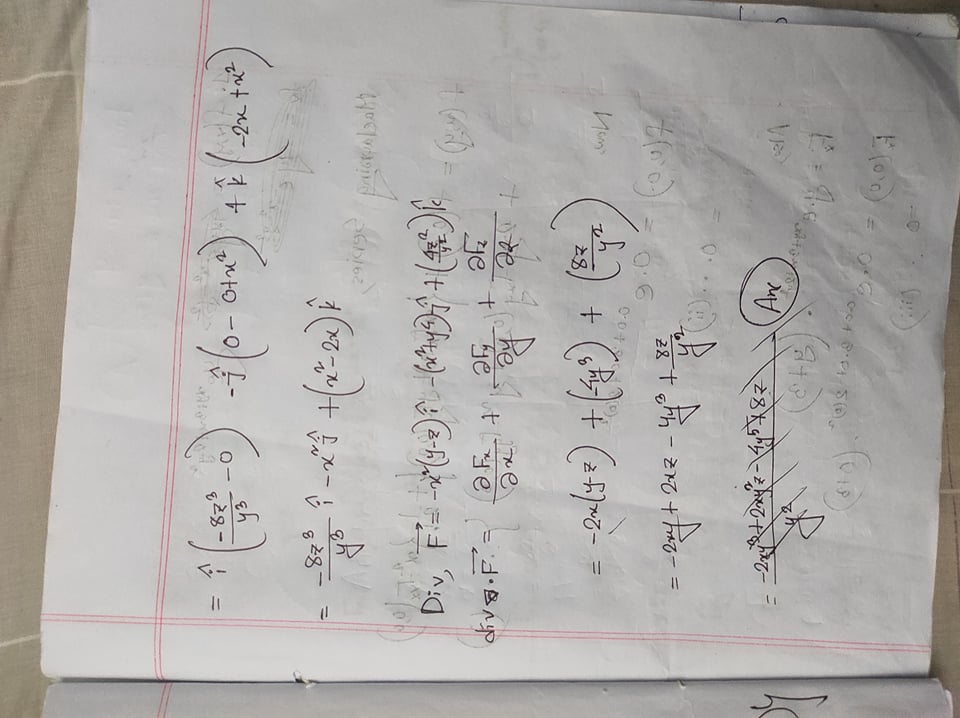 = î (-8z³/y³ - 0) - ĵ (0 - 0 + x²) + k̂ (-2x + x²)
= -8z³/y³ î - x² ĵ + (x² - 2x) k̂
Div, F⃗ = -x²(y-z) î - (x²+y⁴) ĵ + (4z²/y²) k̂
div . F⃗ = ∂Fx/∂x + ∂Fy/∂y + ∂Fz/∂z
= -2x(y-z) + (-4y³) + (8z/y²)
= -2xy + 2xz - 4y³ + 8z/y²
= -2xy³ + 2xy²z - 4y⁵ + 8z / y² Ans